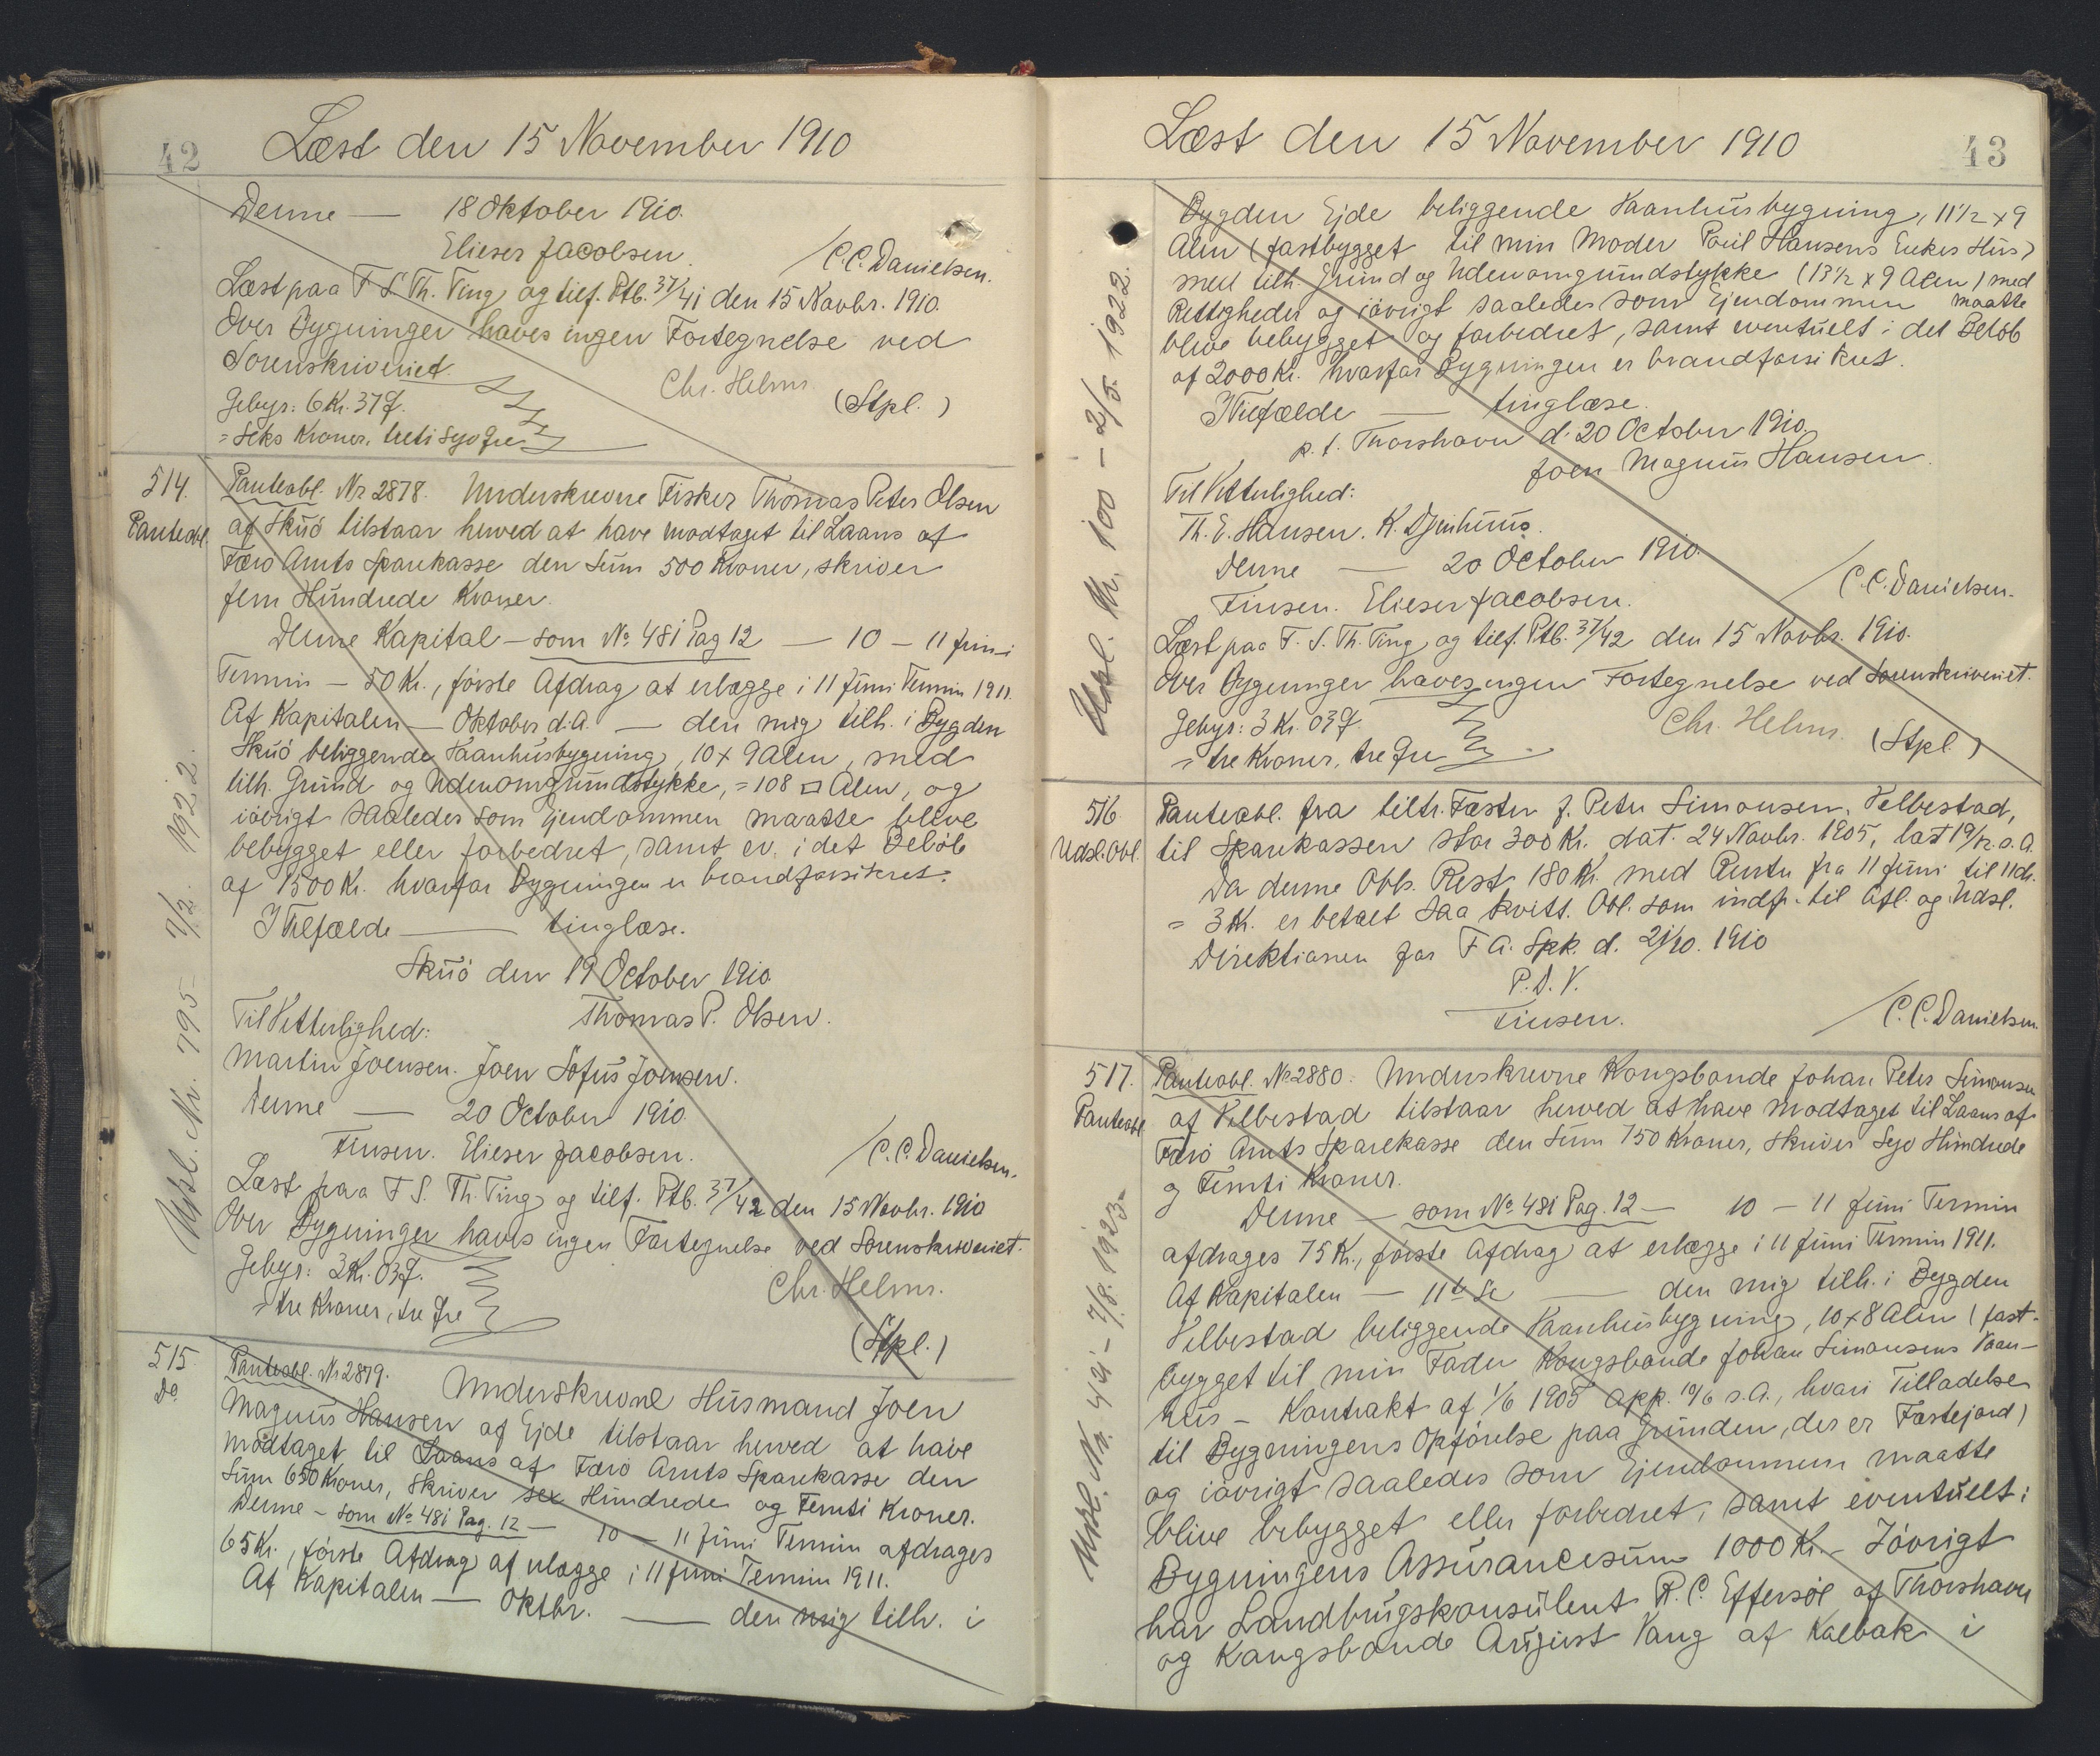 42
Læst den 15 November 1910
Denne — 18 Oktober 1910.
Elieser Jacobsen.
/C.C. Danielsen.
Læst paa F. S. Th. Ting og tilf. Ptb. 37/41 den 15 Novbr. 1910.
Over Bygninger haves ingen Fortegnelse ved
Sorenskriveriet.
Chr. Helms.
(Stpl.)
Gebyr: 6 Kr. 37 Ø.
= Seks Kroner, treti syv Øre
514.
Panteobl.
Panteobl. Nr 2878. Underskrevne Fisker Thomas Peter Olsen
af Skuö tilstaar herved at have modtaget til Laans af
Færö Amts Sparekasse den Sum 500 Kroner, skriver
fem Hundrede Kroner.
Denne Kapital — som No. 481 Pag 12 — 10 — 11 Juni
Termin — 50 Kr., første Afdrag at erlægge i 11 Juni Termin 1911.
Af Kapitalen — Oktober d.A. — den mig tilh. i Bygden
Skuö beliggende Vaanhusbygning, 10 x 9 Alen, med
tilh. Grund og Udenomgrundstykke, = 108 □ Alen, og
iövrigt saaledes som Ejendommen maatte blive
bebygget eller forbedret, samt ev. i det Belöb
af 1500 Kr. hvorfor Bygningen er brandforsikret.
I Tilfælde — tinglæse.
Skuö den 19 October 1910
Thomas P. Olsen.
Til Vitterlighed:
Martin Joensen. Joen Sofus Joensen.
Denne — 20 October 1910
Finsen. Elieser Jacobsen.
/C.C. Danielsen.
Læst paa F. S. Th. Ting og tilf. Ptb. 37/42 den 15 Novbr. 1910
Over Bygninger haves ingen Fortegnelse ved Sorenskriveriet.
Gebyr: 3 Kr. 03 Ø.
Chr. Helms.
= tre Kroner, tre Øre
(Stpl.)
Udsl. Nr. 795 - 7/2. 1922.
515.
Do
Panteobl. Nr 2879. Underskrevne Husmand Joen
Magnus Hansen af Ejde tilstaar herved at have
modtaget til Laans af Færö Amts Sparekasse den
Sum 650 Kroner, skriver sex Hundrede og Femti Kroner.
Denne — som No 481 Pag. 12 — 10 — 11 Juni Termin afdrages
65 Kr., første Afdrag at erlægge i 11 Juni Termin 1911.
Af Kapitalen — Oktbr. — den mig tilh. i
43
Læst den 15 November 1910
Bygden Ejde beliggende Vaanhusbygning, 11 1/2 x 9
Alen (fastbygget til min Moder Poul Hansens Enkes Hus)
med tilh. Grund og Udenomgrundstykke (13 1/2 x 9 Alen) med
Rettigheder og iövrigt saaledes som Ejendommen maatte
blive bebygget og forbedret, samt eventuelt i det Belöb
af 2000 Kr. hvorfor Bygningen er brandforsikret.
I Tilfælde — tinglæse.
p. t. Thorshavn d. 20 October 1910.
Joen Magnus Hansen.
Til Vitterlighed:
Th. E. Hansen. K. Djurhuus.
Denne — 20 October 1910.
Finsen. Elieser Jacobsen.
/C.C. Danielsen.
Læst paa F. S. Th. Ting og tilf. Ptb. 37/42 den 15 Novbr. 1910.
Over Bygninger haves ingen Fortegnelse ved Sorenskriveriet.
Gebyr: 3 Kr. 03 Ø.
Chr. Helms.
(Stpl.)
= tre Kroner, tre Øre
Udsl. Nr. 100 - 2/5. 1922.
516.
Udsl. Obl.
Panteobl. fra tiltr. Fæster J. Peter Simonsen, Velbestad,
til Sparekassen stor 300 Kr. dat. 24 Novbr. 1905, læst 19/12. s. A.
Da denne Obls. Rest 180 Kr. med Renter fra 11 Juni til 11 ds.
= 3 Kr. er betalt saa kvitt. Obl. som indfr. til Afl. og Udsl.
Direktionen for F. A. Spk. d. 21/10. 1910
P. D. V.
Finsen.
/C.C. Danielsen.
517.
Panteobl.
Panteobl. No 2880. Underskrevne Kongsbonde Johan Peter Simonsen
af Velbestad tilstaar herved at have modtaget til Laans af
Færö Amts Sparekasse den Sum 750 Kroner, skriver Syv Hundrede
og Femti Kroner.
Denne — som No. 481 Pag. 12 — 10 — 11 Juni Termin
afdrages 75 Kr., første Afdrag at erlægge i 11 Juni Termin 1911.
Af Kapitalen — 11te — den mig tilh. i Bygden
Velbestad beliggende Vaanhusbygning, 10 x 8 Alen (fast-
bygget til min Fader Kongsbonde Johan Simonsens Vaan-
hus — Kontrakt af 1/6 1905 app. 19/6 s. A., hvori Tilladelse
til Bygningens Opförelse paa Grunden, der er Fæstejord)
og iövrigt saaledes som Ejendommen maatte
blive bebygget eller forbedret, samt eventuelt i
Bygningens Assurancesum 1000 Kr. — Iövrigt
har Landbrugskonsulent R. C. Effersøe af Thorshavn
og Kongsbonde August Vang af Kalbak i
Udsl. Nr. 491 - 7/8. 1923